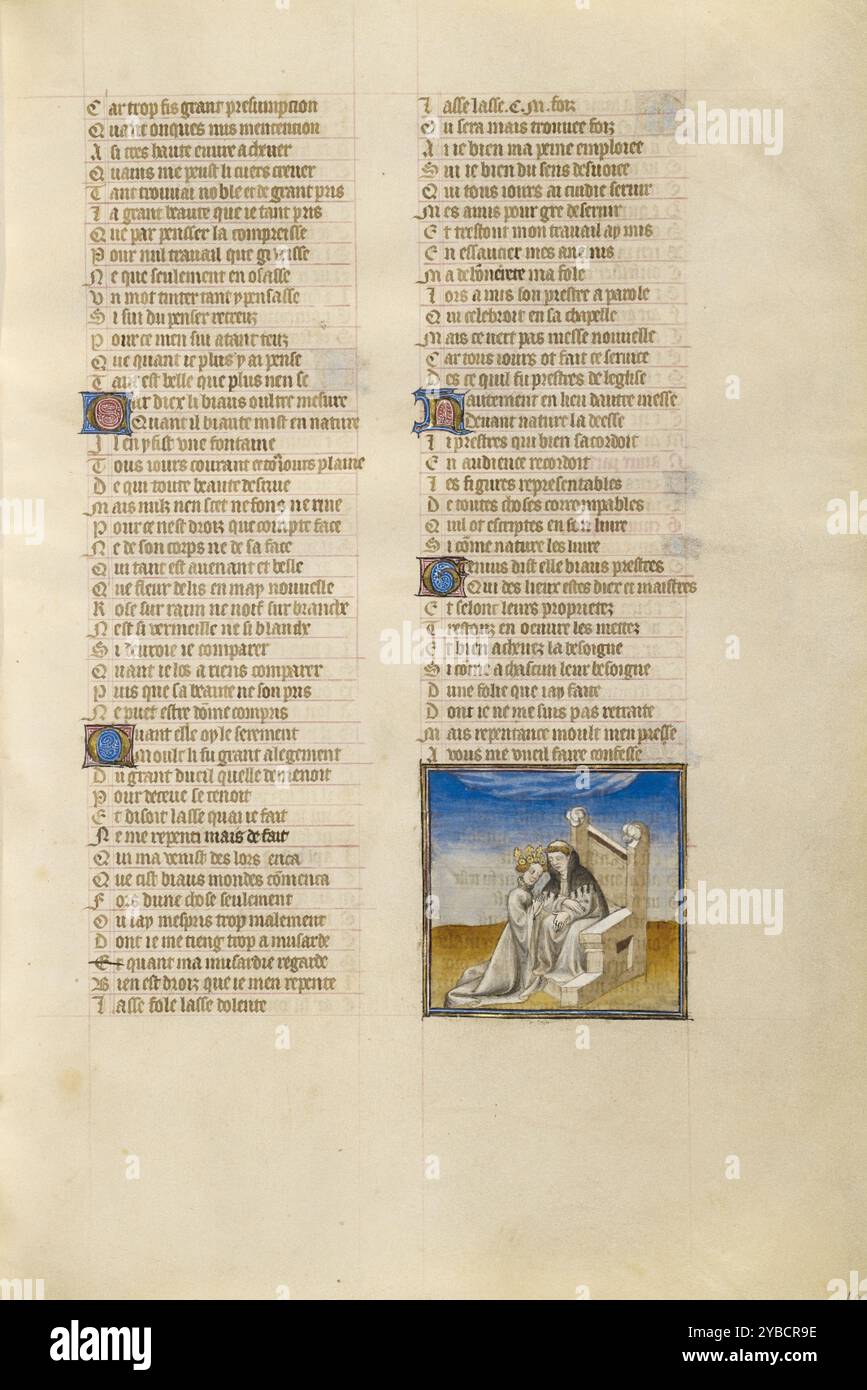 Car trop fis grant presumpcion
Quant onques mis mentencion
A si tres haute euure acheuer
Quains me peust li cuers creuer
Tant trouuai noble et de grant pris
La grant beaute que ie tant pris
Que par penser la compreisse
Pour nul trauail que gi meisse
Ne que seulement en osasse
Vn mot tinter tant y pensasse
Si sui du penser recreuz
Pour ce men sui atant teuz
Que quant ie plus y ai pense
Tant est belle que plus nen se
Car diex li biaus oultre mesure
Quant il biaute mist en nature
Il en y fist vne fontaine
Tous iours courant et toujours plaine
De qui toute beaute desriue
Mais nulz nen scet ne fons ne riue
Pour ce nest droiz que compte face
Ne de son corps ne de sa face
Qui tant est auenant et belle
Que fleur de lis en may nouuelle
Rose sur raim ne noif sur branche
Nest si vermeille ne si blanche
Si deuroie ie comparer
Quant ie los a riens comparer
Puis que sa beaute ne son pris
Ne puet estre dome compris
Quant elle oy le serement
Moult li fu grant alegement
Du grant dueil quelle demenoit
Pour deceue se tenoit
Et disoit lasse quai ie fait
Ne me repenti mais de fait
Qui ma venist des lors enca
Que cist biaus mondes comenca
Fors dune chose seulement
Ou iay mespris trop malement
Dont ie me tieng trop a musarde
Et quant ma musardie regarde
Bien est droiz que ie men repente
Lasse fole lasse dolente
Lasse lasse .C.M. foiz
Ou sera mais trouuee foiz
Ai ie bien ma peine emploiee
Sui ie bien du sens desuoiee
Qui tous iours ai cuidie seruir
Mes amis pour gre deseruir
Et trestout mon trauail ay mis
En essaucier mes anemis
Ma debonnerete ma fole
Lors a mis son prestre a parole
Qui celebroit en sa chapelle
Mais ce nert pas messe nouuelle
Car tous iours ot fait ce seruice
Des ce quil fu prestres de leglise
Hautement en lieu dautre messe
Deuant nature la deesse
Li prestres qui bien sacordoit
En audience recordoit
Les figures representables
De toutes choses corrompables
Quil ot escriptes en son liure
Si come nature les liure
Genius dist elle biaus prestres
Qui des lieux estes diex et maistres
Et selonc leurs proprietez
Trestouz en oeuure les mettez
Et bien acheuez la besoigne
Si come a chascun leur besoigne
Dune folie que iay faite
Dont ie ne me suis pas retraite
Mais repentance moult men presse
A vous me vueil faire confesse
alamy
Image ID: 2YBCR9E
www.alamy.com